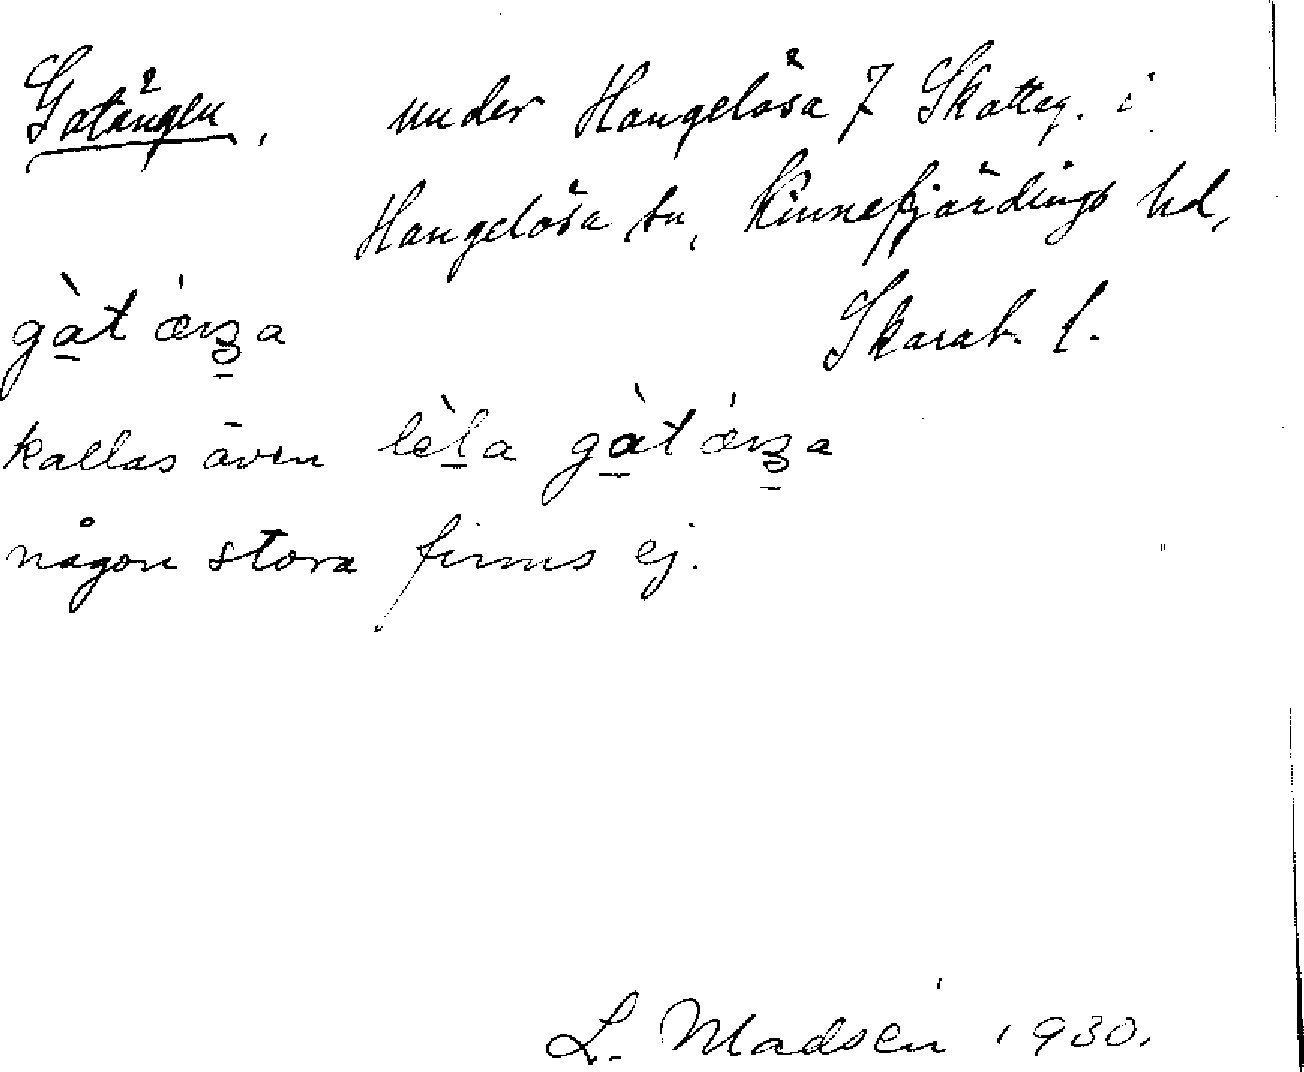 Gatängen, under Hangelösa 7 Skatteg. i
Hangelösa sn, Kinnefjärdings hd,
Skarab. l.
kallas även
någon stora finns ej.
L. Madsén 1930.